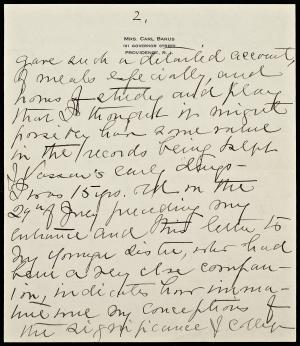 2.
MRS. CARL BARUS
161 GOVERNOR STREET
PROVIDENCE, R. I.
gave such a detailed account,
of meals especially, and
hours of study and play
that I thought it might
possibly have some value
in the records being kept
of Vassar's early days -
I was 15 yrs. old on the
29th of June preceding my
entrance and this letter to
my younger sister, who had
been a very close compan-
ion, indicates how imma-
ture were my conceptions of
the significance of college